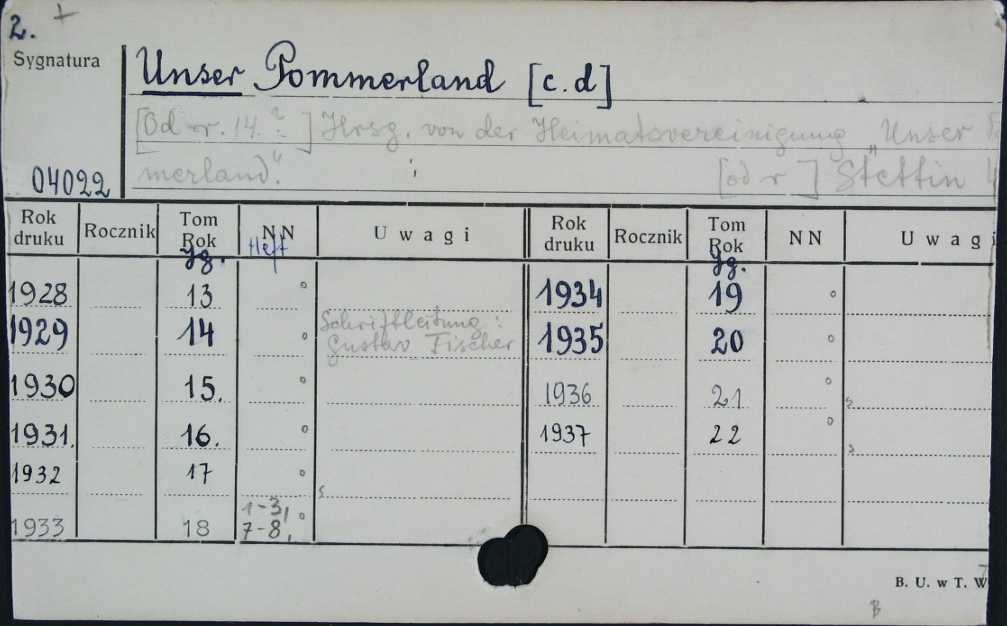 2. +
Sygnatura
Unser Pommerland [c.d]
[Od r. 14.?] Hrsg. von der Heimatsvereinigung „Unser
merland." ; [od r ] Stettin
04022
Rok druku Rocznik Tom Rok Jg. NN Heft Uwagi Rok druku Rocznik Tom Rok Jg. NN Uwagi
1928 13 ° 1934 19 °
1929 14 ° Schriftleitung: Gustav Fischer 1935 20 °
1930 15. ° 1936 21 ° s
1931. 16. ° 1937 22 ° s
1932 17 ° s
1933 18 1-3, 7-8, °
B. U. w T. W
B